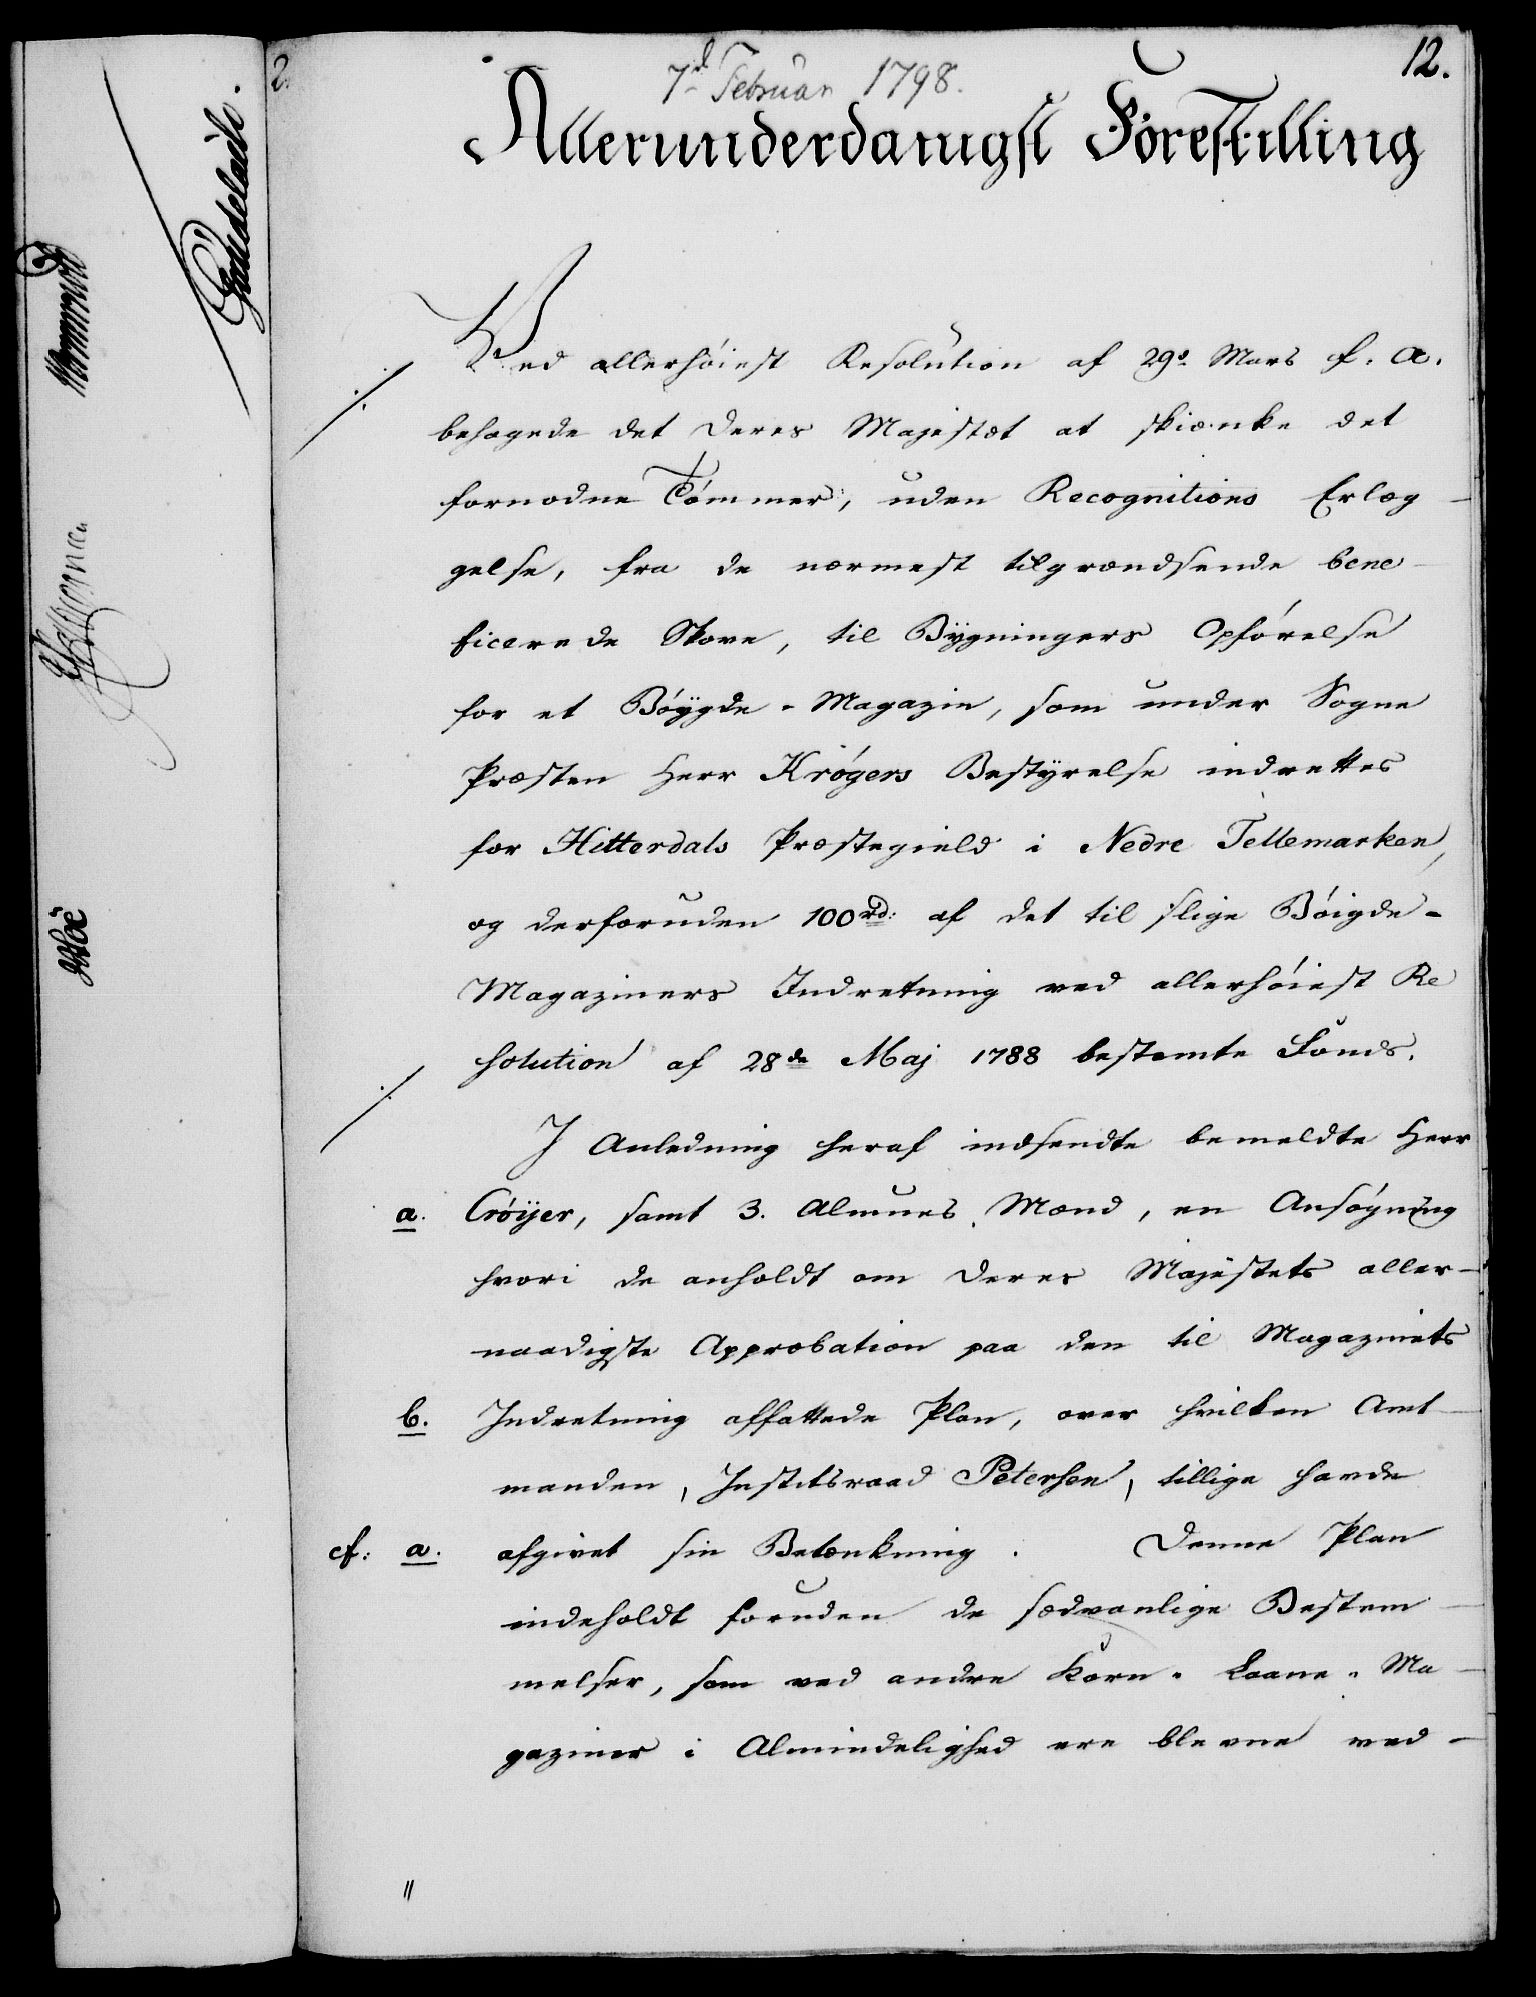 12.
7d Februar 1798.
Allerunderdanigst Forestilling
Ved allerhöiest Resolution af 29s. Mars f. A.
behagede det Deres Majestæt at skiænke det
fornødne Tömmer, uden Recognitions Erlæg-
gelse, fra de nærmest tilgrændsende bene-
ficerede Skove, til Bÿgningers Opförelse
for et Böÿgde-Magazin, som under Sogne
Præsten Herr Krögers Bestÿrelse indrettes
for Hitterdals Præstegield i Nedre Tellemarken,
og desforuden 100 rd: af det til slige Böigde-
Magaziners Indretning ved allerhöiest Re
solution af 28de Maj 1788 bestemte Fonds.
I Anledning heraf indsendte bemeldte Herr
a. Cröijer, samt 3. Almues Mænd, en Ansögning
hvori de anholdt om Deres Majestets aller-
naadigste Approbation paa den til Magazinets
b. Indretning affattede Plan, over hvilken Amt-
manden, Justitsraad Petersen, tillige havde
cf: a. afgivet sin Betænkning. Denne Plan
indeholdt foruden de sædvanlige Bestem-
melser, som ved andre Korn-Laane-Ma-
gaziner i Almindelighed ere blevne ved-